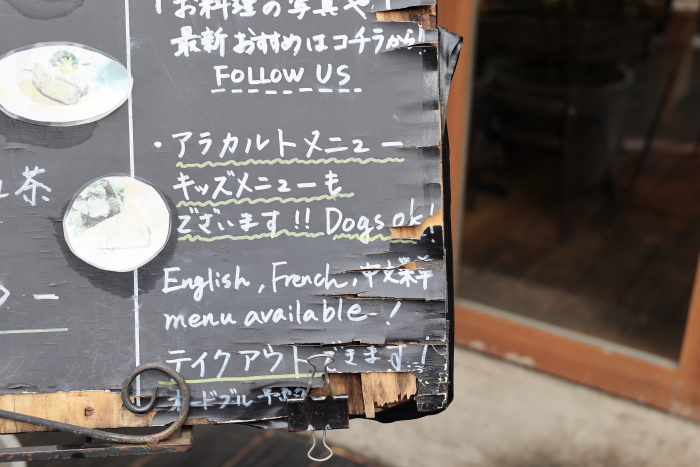 お料理の写真や、
最新おすすめはコチラから!
FOLLOW US
茶
・アラカルトメニュー
キッズメニューも
ございます!! Dogs ok!
English, French, 中文菜单
menu available !
テイクアウトできます!
オードブル